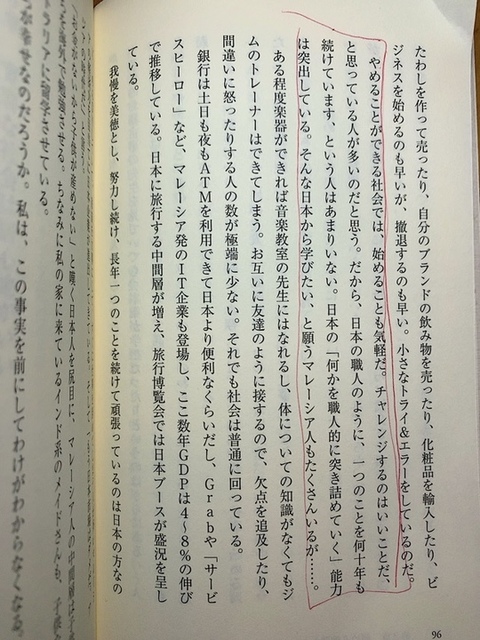 96
たわしを作って売ったり、自分のブランドの飲み物を売ったり、化粧品を輸入したり、ビ
ジネスを始めるのも早いが、撤退するのも早い。小さなトライ&エラーをしているのだ。
やめることができる社会では、始めることも気軽だ。チャレンジするのはいいことだ、
と思っている人が多いのだと思う。だから、日本の職人のように、一つのことを何十年も
続けています、という人はあまりいない。日本の「何かを職人的に突き詰めていく」能力
は突出している。そんな日本から学びたい、と願うマレーシア人もたくさんいるが……。
ある程度楽器ができれば音楽教室の先生にはなれるし、体についての知識がなくてもジ
ムのトレーナーはできてしまう。お互いに友達のように接するので、欠点を追及したり、
間違いに怒ったりする人の数が極端に少ない。それでも社会は普通に回っている。
銀行は土日も夜もATMを利用できて日本より便利なくらいだし、Grabや「サービ
スヒーロー」など、マレーシア発のIT企業も登場し、ここ数年GDPは4〜8%の伸び
で推移している。日本に旅行する中間層が増え、旅行博覧会では日本ブースが盛況を呈し
ている。
我慢を美徳とし、努力し続け、長年一つのことを続けて頑張っているのは日本の方なの
かないから子供が産めない」と嘆く日本人を尻目に、マレーシア人の中間層は
を海外で勉強させる。ちなみに私の家に来ているインド系のメイドさんも、子供
トラリアに留学させている。
が幸せなのだろうか。私は、この事実を前にしてわけがわからなくなる。